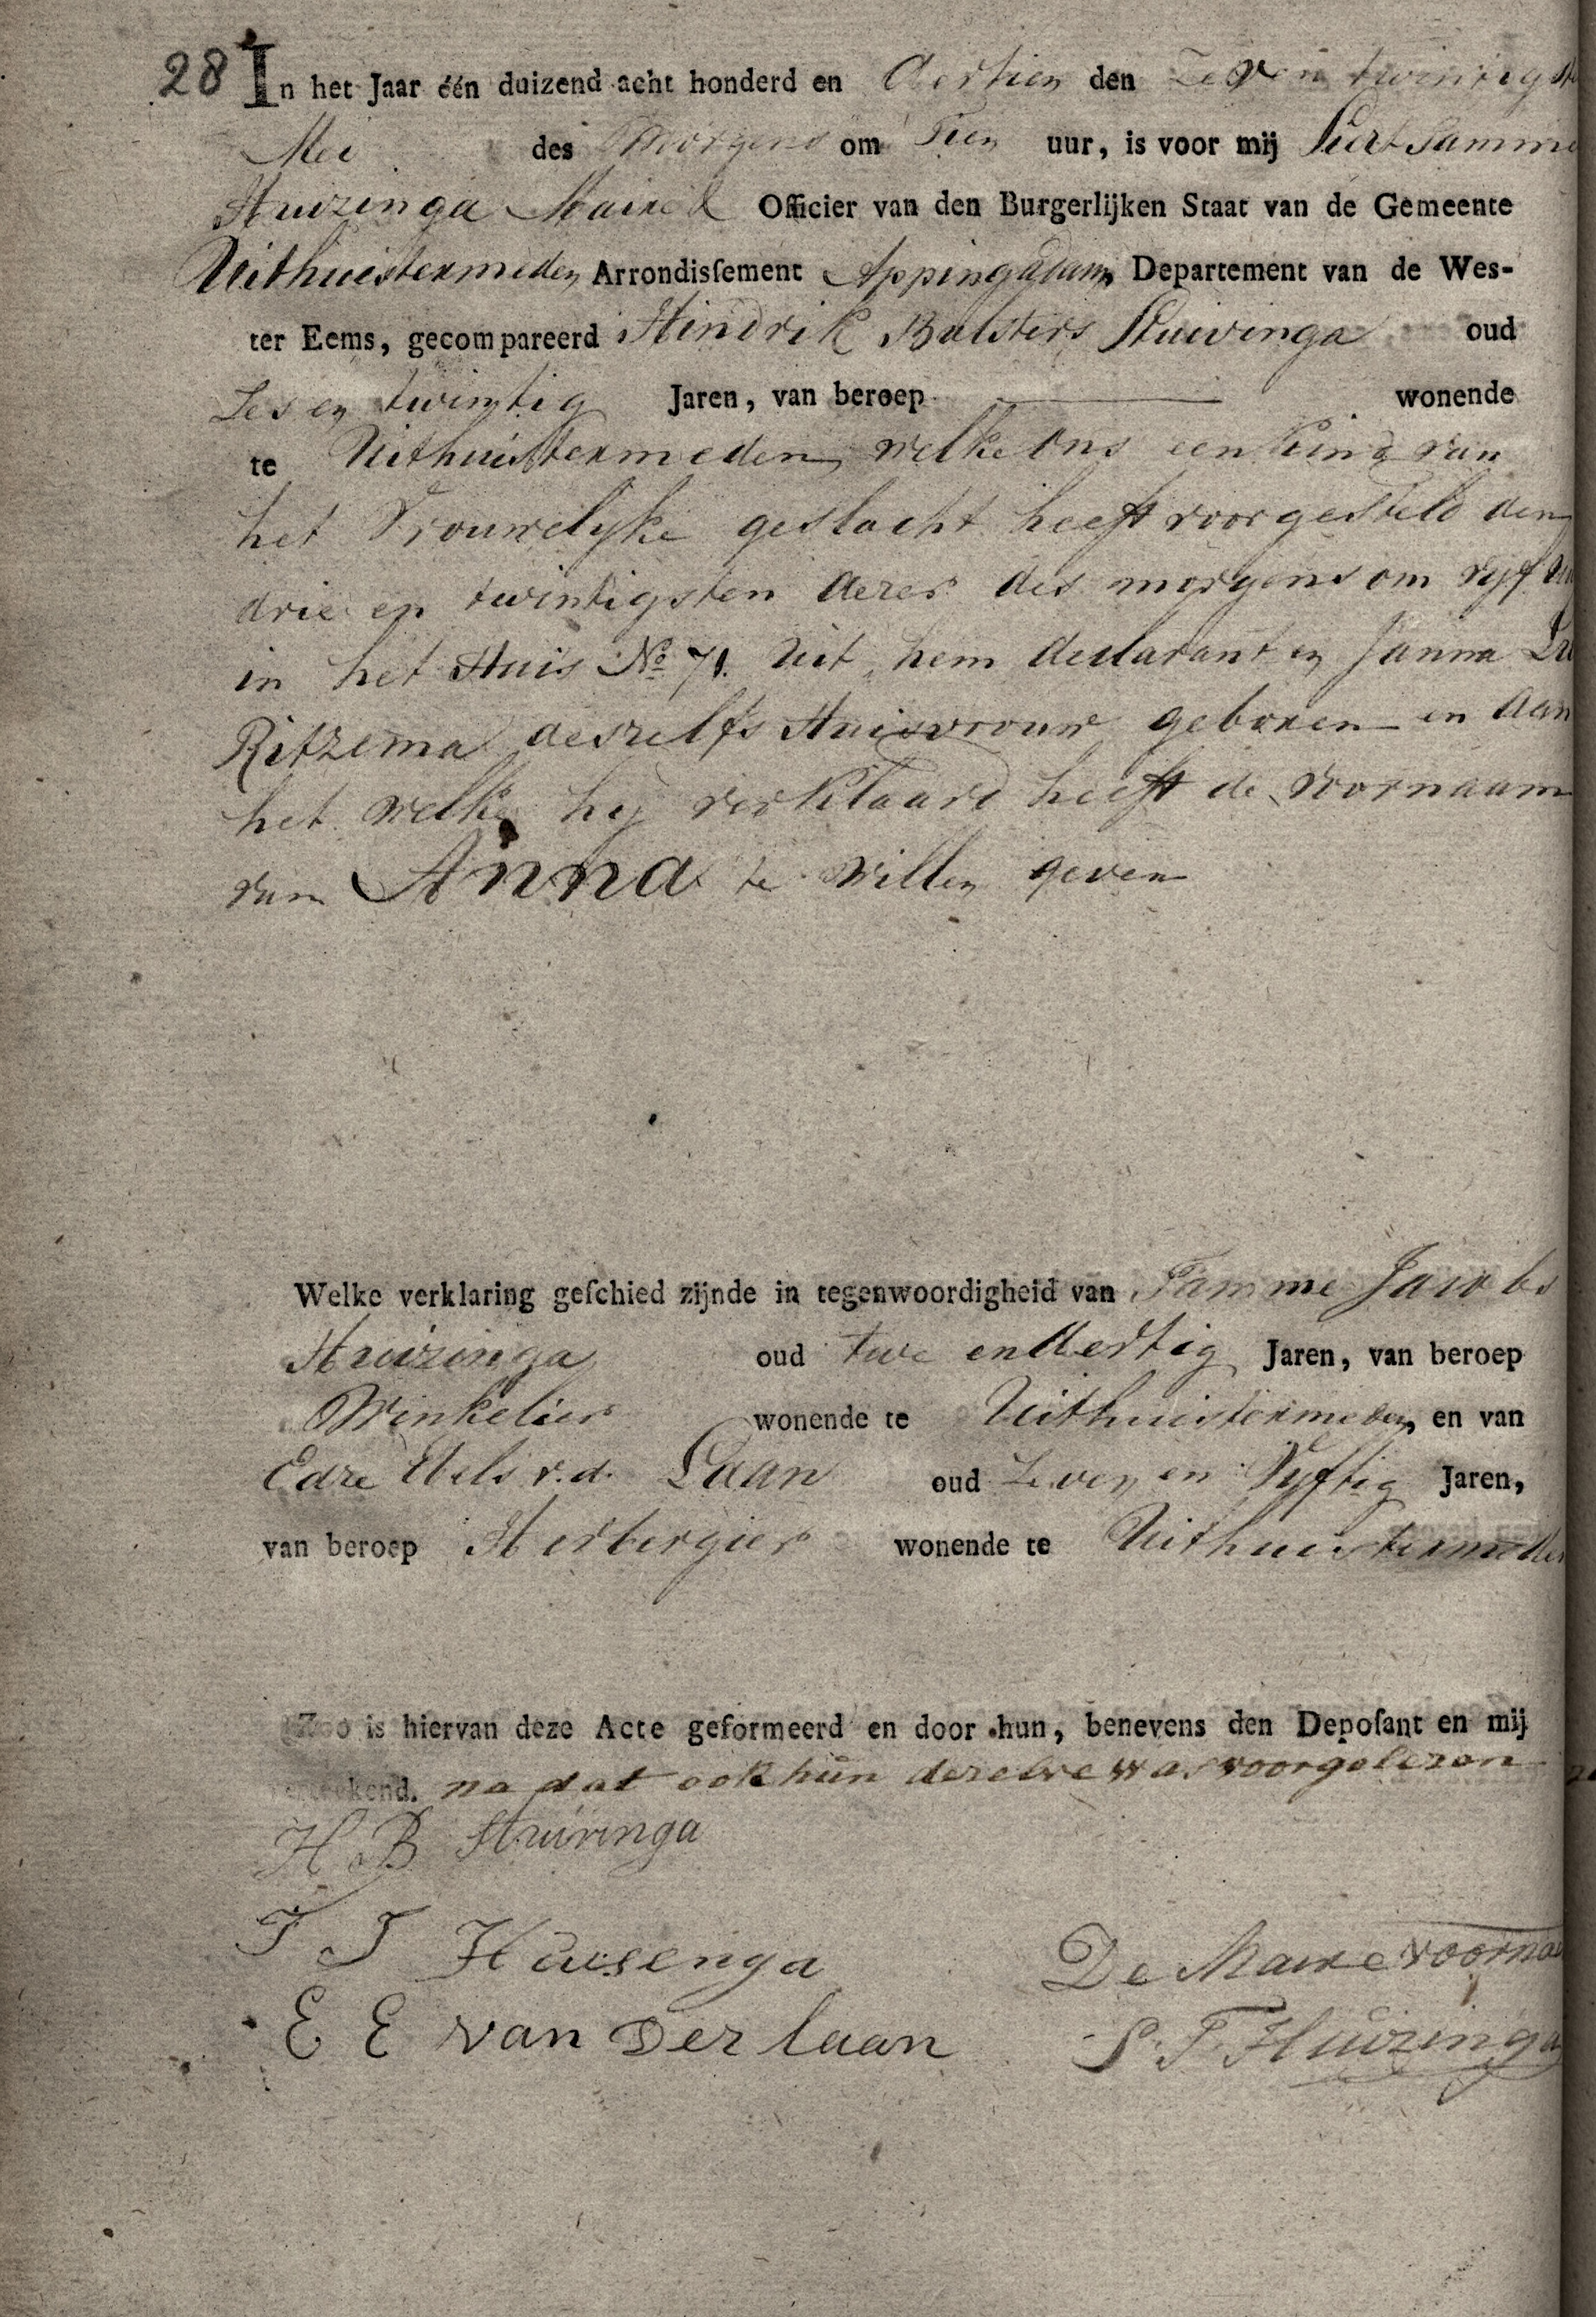 28 In het Jaar één duizend acht honderd en Dertien den Zeven twintigste
Mei des Morgens om Tien uur, is voor mij Siert Tamme
Huizinga Maire & Officier van den Burgerlijken Staat van de Gemeente
Uithuistermeden Arrondisſement Appingadam Departement van de Wes-
ter Eems, gecompareerd Hindrik Bulsters Stuivinga oud
Zes en twintig Jaren, van beroep ——— wonende
te Uithuistermeden, welke ons een Kind van
het Vrouwelijke geslacht heeft voorgesteld den
drie en twintigsten dezer des morgens om vyf
in het Huis No 71. Uit hem declarant en Janna
Ritzema deszelfs Huisvrouw geboren en aan
het welke hy verklaard heeft de voornaam
van Anna te willen geven
Welke verklaring geſchied zijnde in tegenwoordigheid van Tamme Jacobs
Huizinga oud twe en dertig Jaren, van beroep
Winkelier wonende te Uithuistermeden, en van
Edze Ebels v.d. Laan oud Zeven en Vyftig Jaren,
van beroep Herbergier wonende te Uithuistermeden
Zoo is hiervan deze Acte geformeerd en door hun, benevens den Depoſant en mij
geteekend. na dat ook hun derelve was voorgelezen
H B Stuivinga
T J Huisenga
De Maire voorna
E E van Der laan
S. T. Huizinga